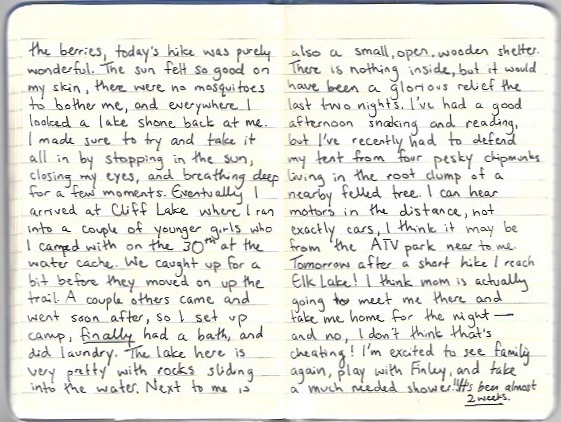 the berries, today's hike was purely
wonderful. The sun felt so good on
my skin, there were no mosquitoes
to bother me, and everywhere I
looked a lake shone back at me.
I made sure to try and take it
all in by stopping in the sun,
closing my eyes, and breathing deep
for a few moments. Eventually I
arrived at Cliff Lake where I ran
into a couple of younger girls who
I camped with on the 30th at the
water cache. We caught up for a
bit before they moved on up the
trail. A couple others came and
went soon after, so I set up
camp, finally had a bath, and
did laundry. The lake here is
very pretty with rocks sliding
into the water. Next to me is
also a small, open, wooden shelter.
There is nothing inside, but it would
have been a glorious relief the
last two nights. I've had a good
afternoon snaking and reading,
but I've recently had to defend
my tent from four pesky chipmunks
living in the root clump of a
nearby felled tree. I can hear
motors in the distance, not
exactly cars, I think it may be
from the ATV park near to me.
Tomorrow after a short hike I reach
Elk Lake! I think mom is actually
going to meet me there and
take me home for the night—
and no, I don't think that's
cheating! I'm excited to see family
again, play with Finley, and take
a much needed shower! It's been almost
2 weeks.